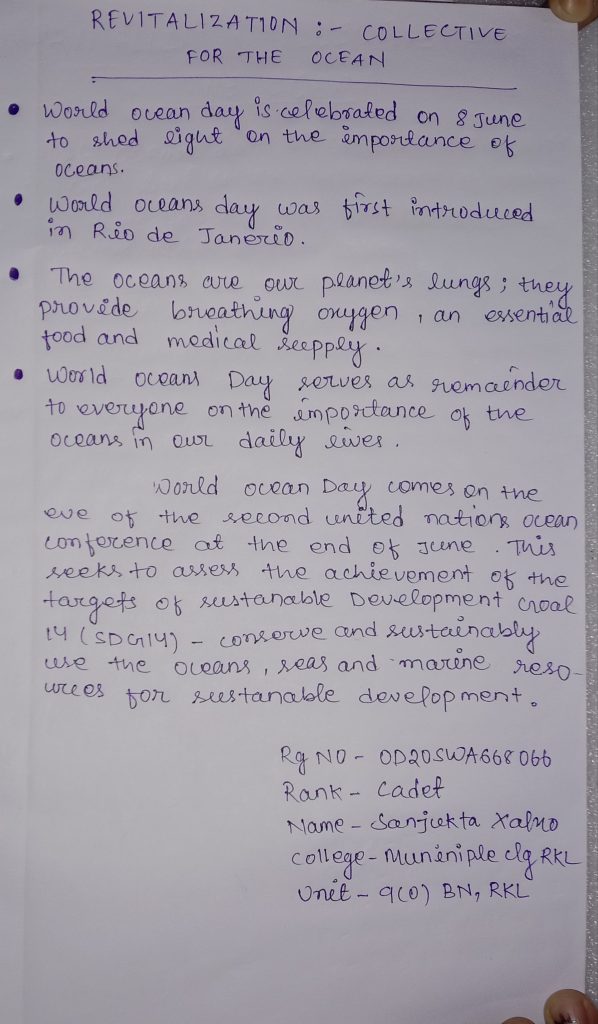 REVITALIZATION :- COLLECTIVE
FOR THE OCEAN
• World ocean day is celebrated on 8 June
to shed light on the importance of
oceans.
• World oceans day was first introduced
in Rio de Janerio.
• The oceans are our planet's lungs; they
provide breathing oxygen, an essential
food and medical supply.
• World oceans Day serves as remainder
to everyone on the importance of the
oceans in our daily lives.
World ocean Day comes on the
eve of the second united nations ocean
conference at the end of June. This
seeks to assess the achievement of the
targets of sustanable Development Goal
14 (SDG14) - conserve and sustainably
use the oceans, seas and marine reso-
urces for sustanable development.
Rg NO - OD20SWA668066
Rank - Cadet
Name - Sanjukta Xalxo
College - Muniniple clg RKL
Unit - 9(O) BN, RKL